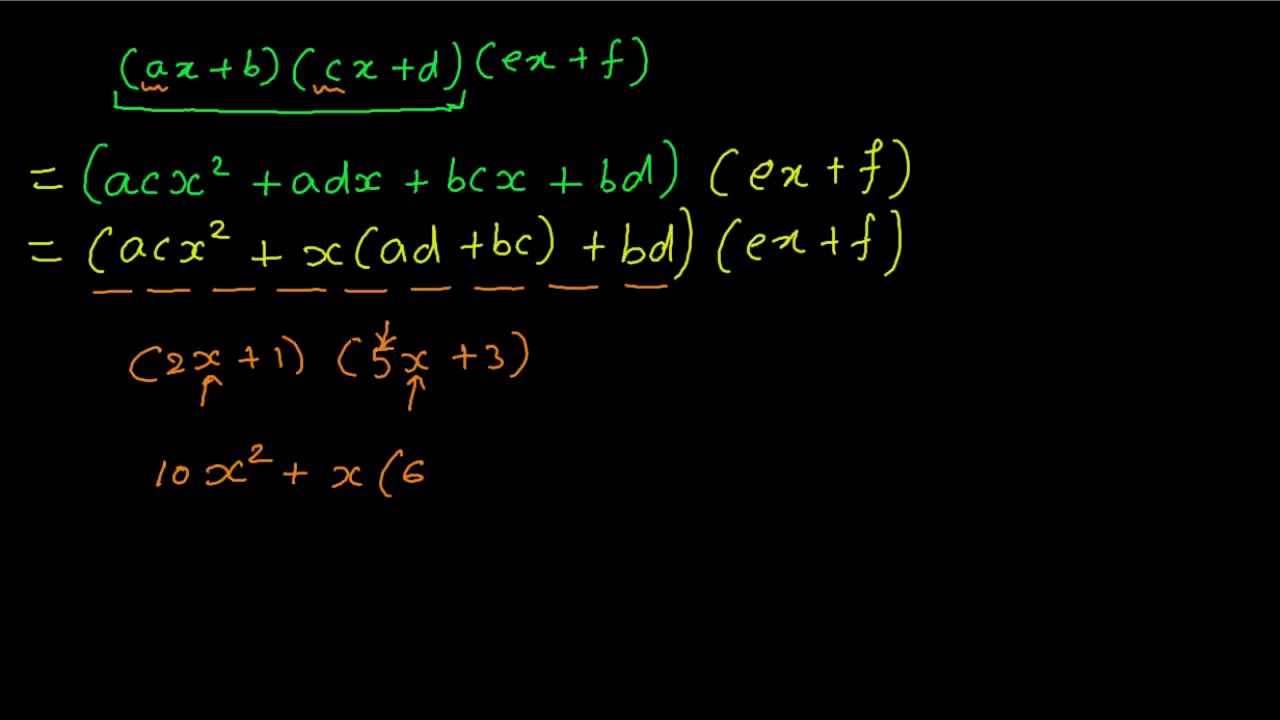 (ax+b)(cx+d)(ex+f)
=(acx²+adx+bcx+bd)(ex+f)
=(acx²+x(ad+bc)+bd)(ex+f)
(2x+1)(5x+3)
10x²+x(6